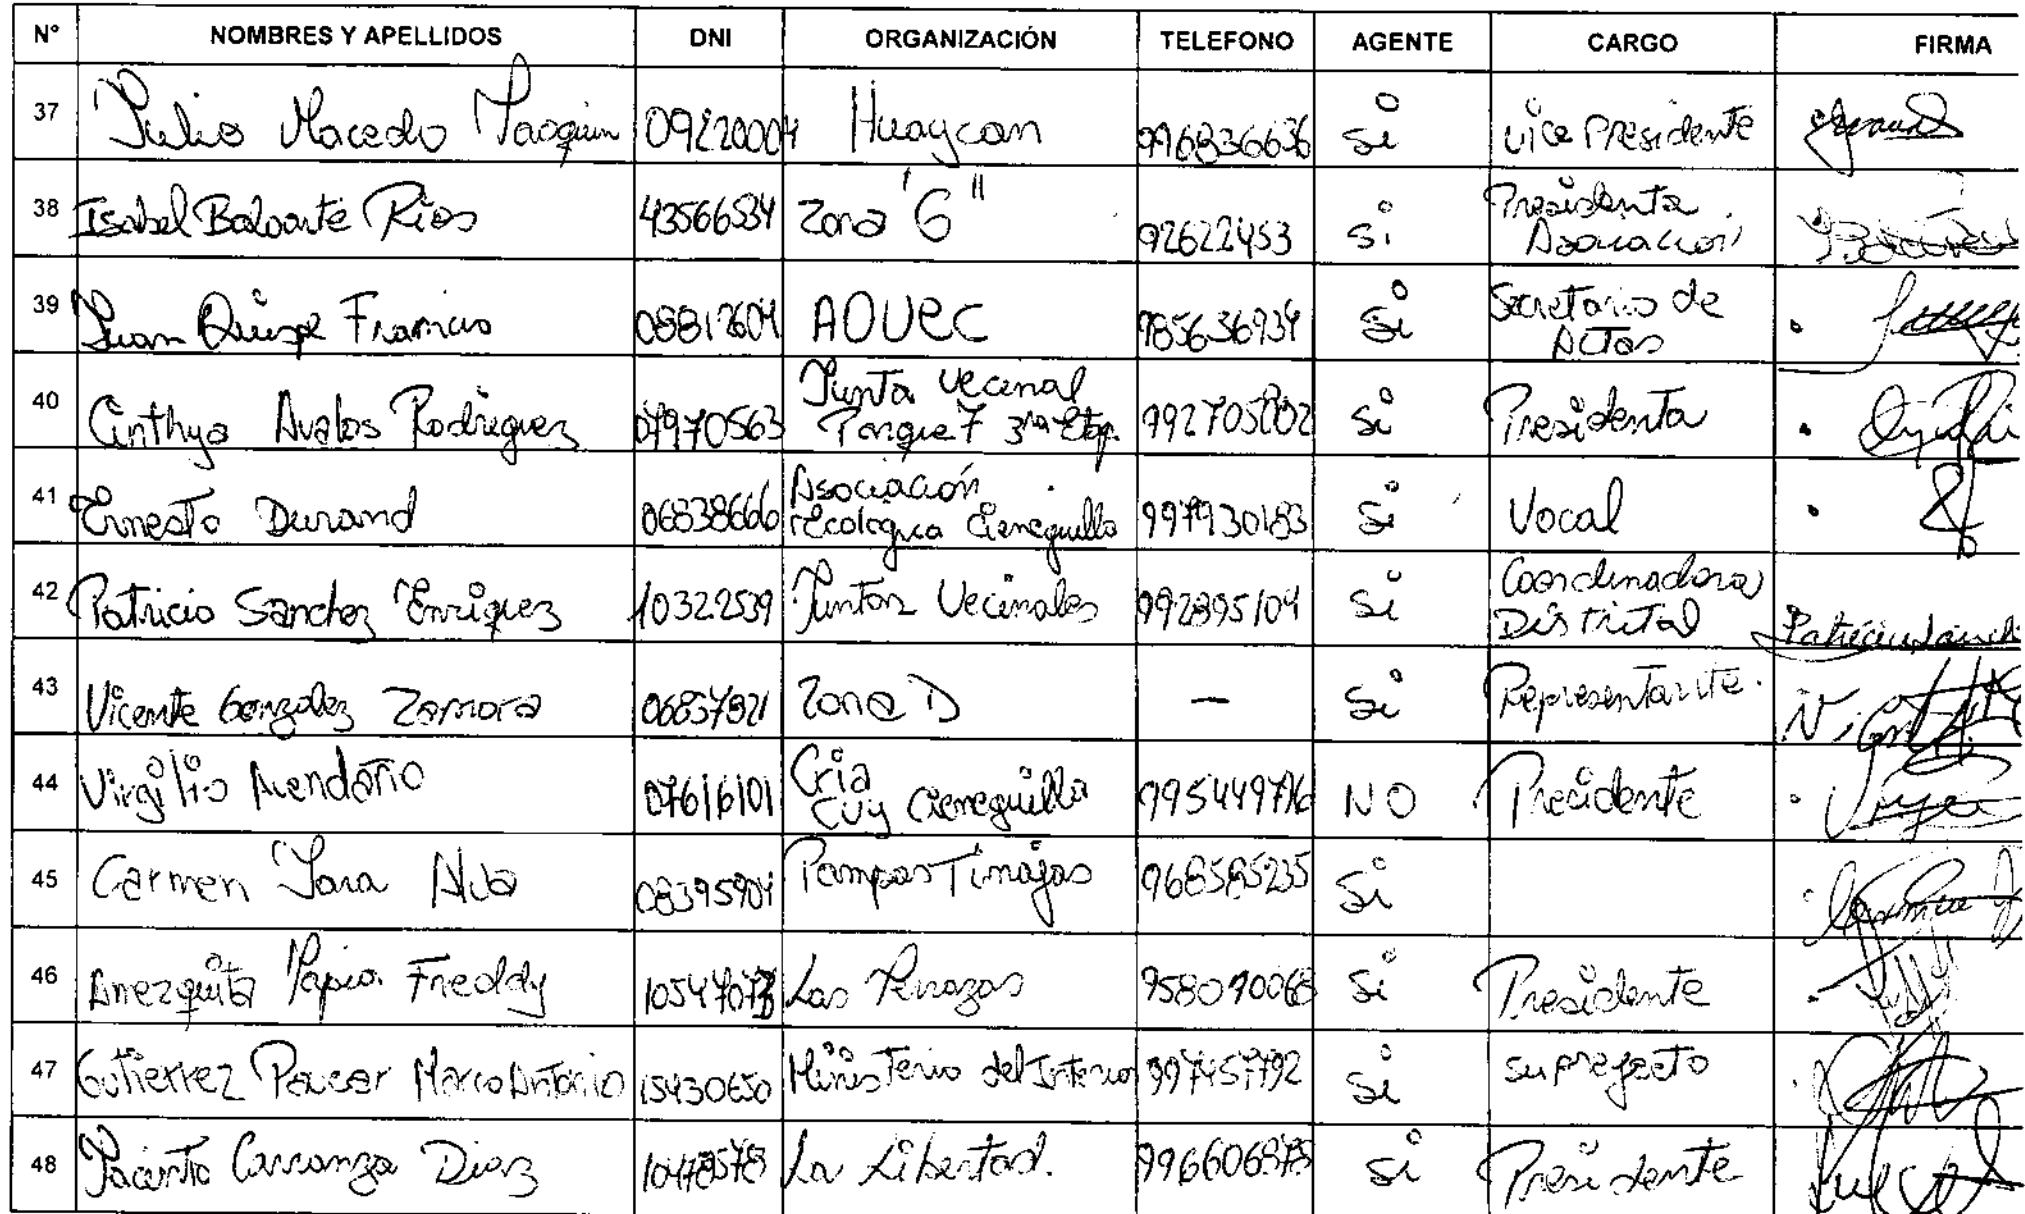 N° NOMBRES Y APELLIDOS DNI ORGANIZACIÓN TELEFONO AGENTE CARGO FIRMA
37 Julio Macedo 09220004 Huaycan 996836636 Si Vice Presidente
38 Isabel Baloarte Rios 43566534 Zona "G" 92622453 Si Presidenta
Asociacion
39 Juan Quispe Francis 08812604 AOVEC 985636934 Si Secretario de
Actas
40 Cinthya Avalos Rodriguez 07970563 Junta Vecinal
Parque 7 3ra Etap. 992705802 Si Presidenta
41 Ernesto Durand 06838666 Asociación
Ecologica Cieneguilla 997930183 Si Vocal
42 Patricia Sanchez Enriquez 10322539 Juntas Vecinales 992895104 Si Coordinadora
Distrital
43 Vicente Gonzalez Zamora 06857821 Zona D — Si Representante.
44 Virgilio Avendaño 07616101 Cria
Cuy Cieneguilla NO Presidente
45 Carmen Jara Alva 08395904 Pampas Tinajas 968585235 Si
46 Amezquita Tapia Freddy Las Terrazas 958090068 Si Presidente
47 Gutierrez Paucar Marco Antonio 15430650 Ministerio del Interior 997457792 Si suprefecto
48 Jacinto Carranza Diaz La Libertad. Si Presidente